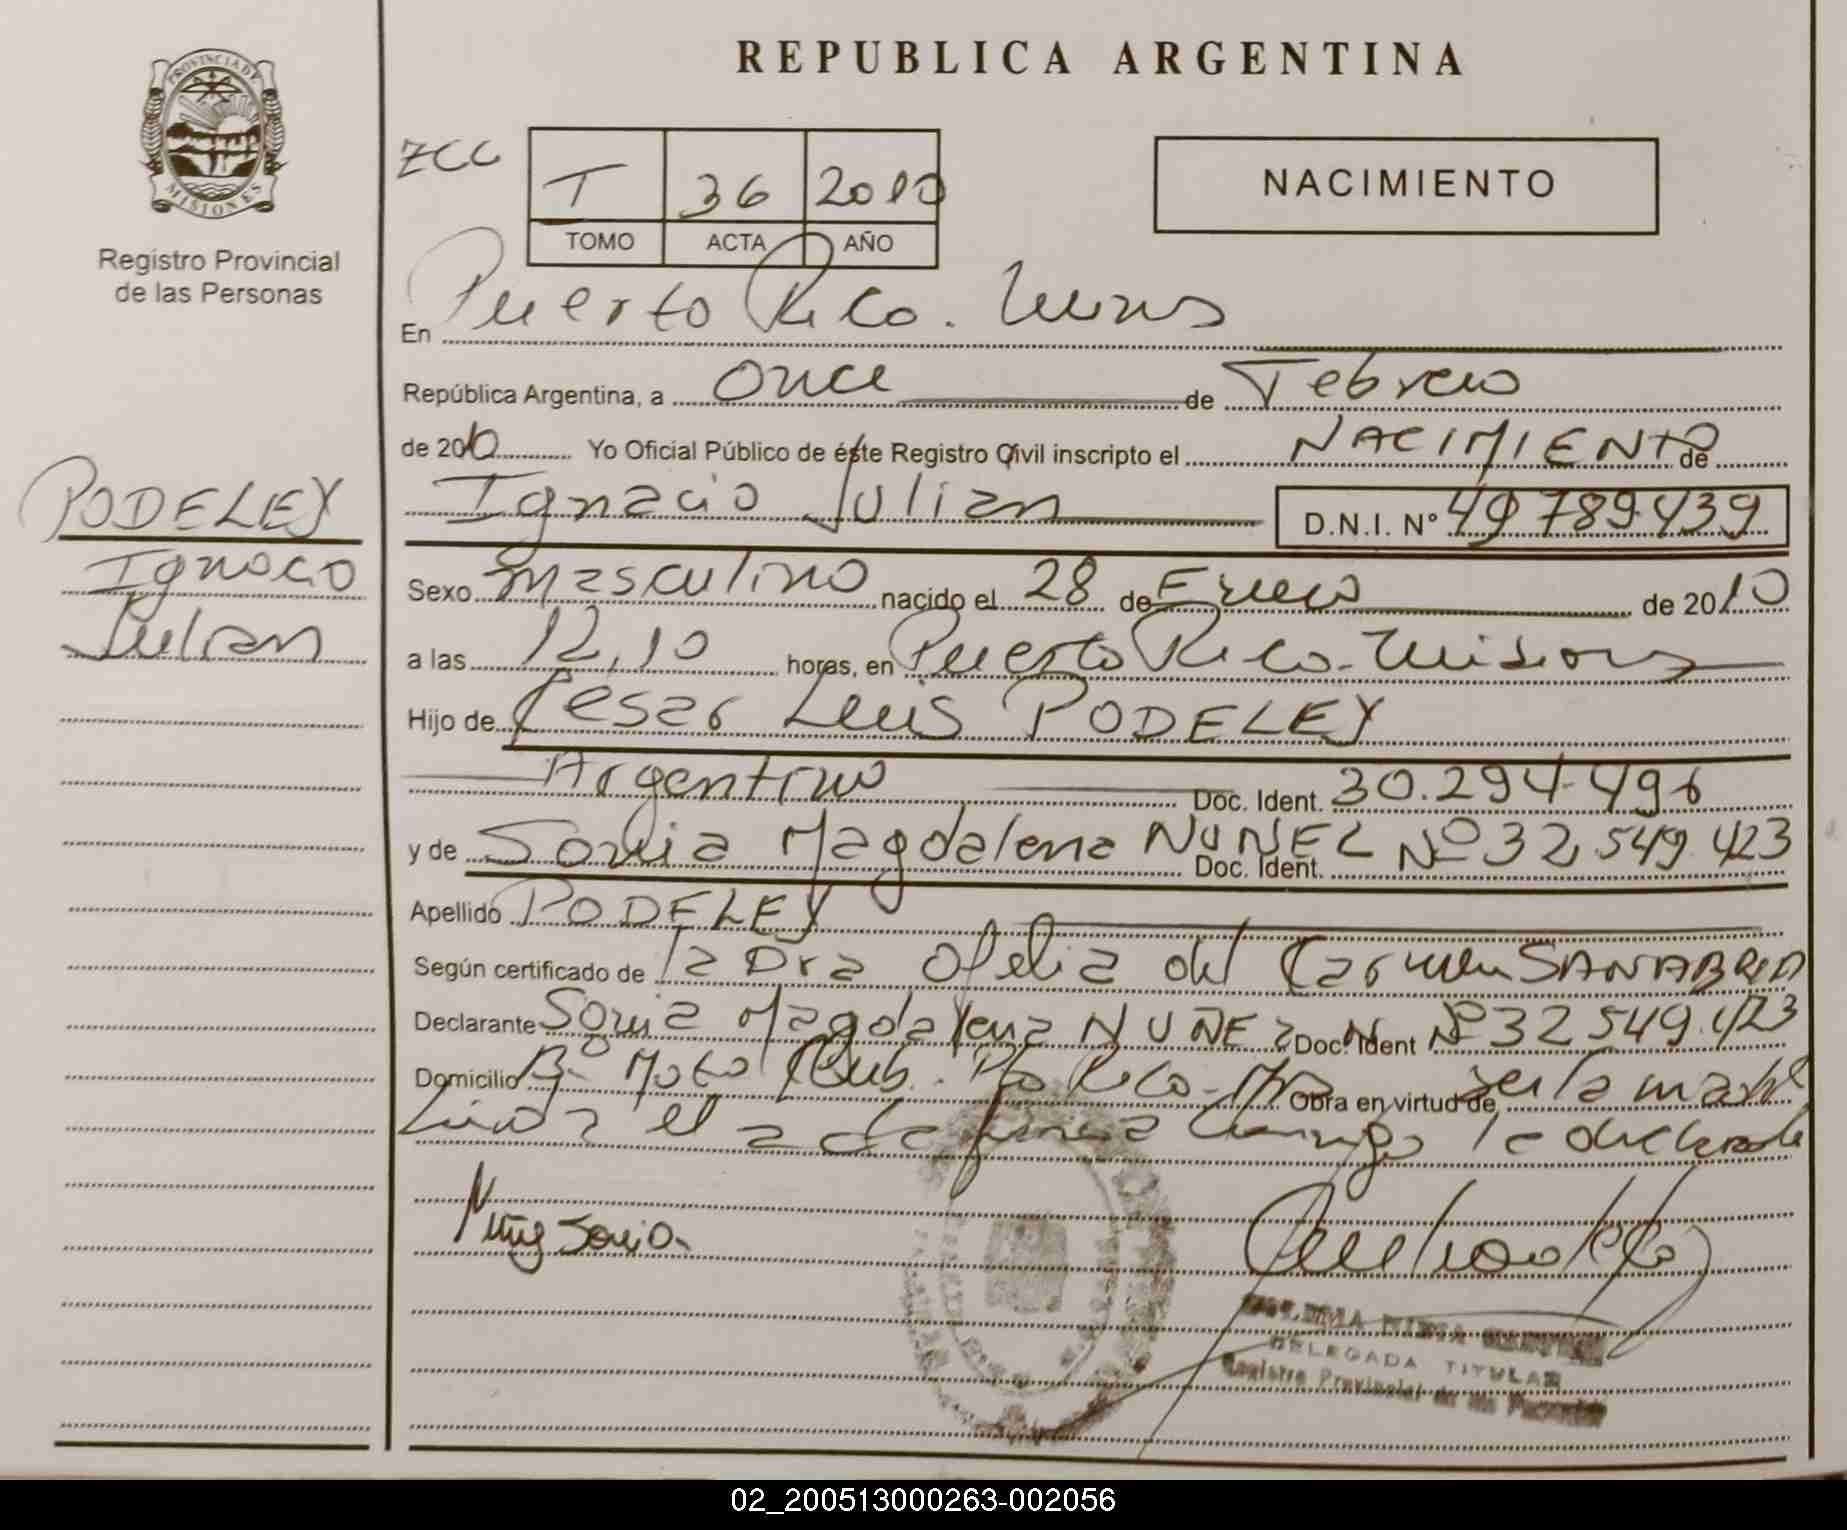 PROVINCIA DE
MISIONES
Registro Provincial
de las Personas
PODELEY
Ignacio
Julian
REPUBLICA ARGENTINA
ZCC
T 36 2010
TOMO ACTA AÑO
NACIMIENTO
En Puerto Rico. Mnes
República Argentina, a Once de Febrero
de 2010 Yo Oficial Público de éste Registro Civil inscripto el NACIMIENTO de
Ignacio Julian D.N.I. N° 49 789 439
Sexo masculino nacido el 28 de Enero de 2010
a las 12,10 horas, en Puerto Rico - Misiones
Hijo de Cesar Luis PODELEY
Argentino Doc. Ident. 30.294.496
y de Sonia Magdalena NUÑEZ Doc. Ident. Nº 32.549.423
Apellido PODELEY
Según certificado de la Dra Ofelia del Carmen SANABRIA
Declarante Sonia Magdalena NUÑEZ Doc. Ident Nº 32 549.423
Domicilio Bº Moto Club. Pto Rico - Obra en virtud de ser la madre
el acta firma conmigo la declarante
Nuñez Sonia
DELEGADA TITULAR
Registro Provincial de las Personas
02_200513000263-002056